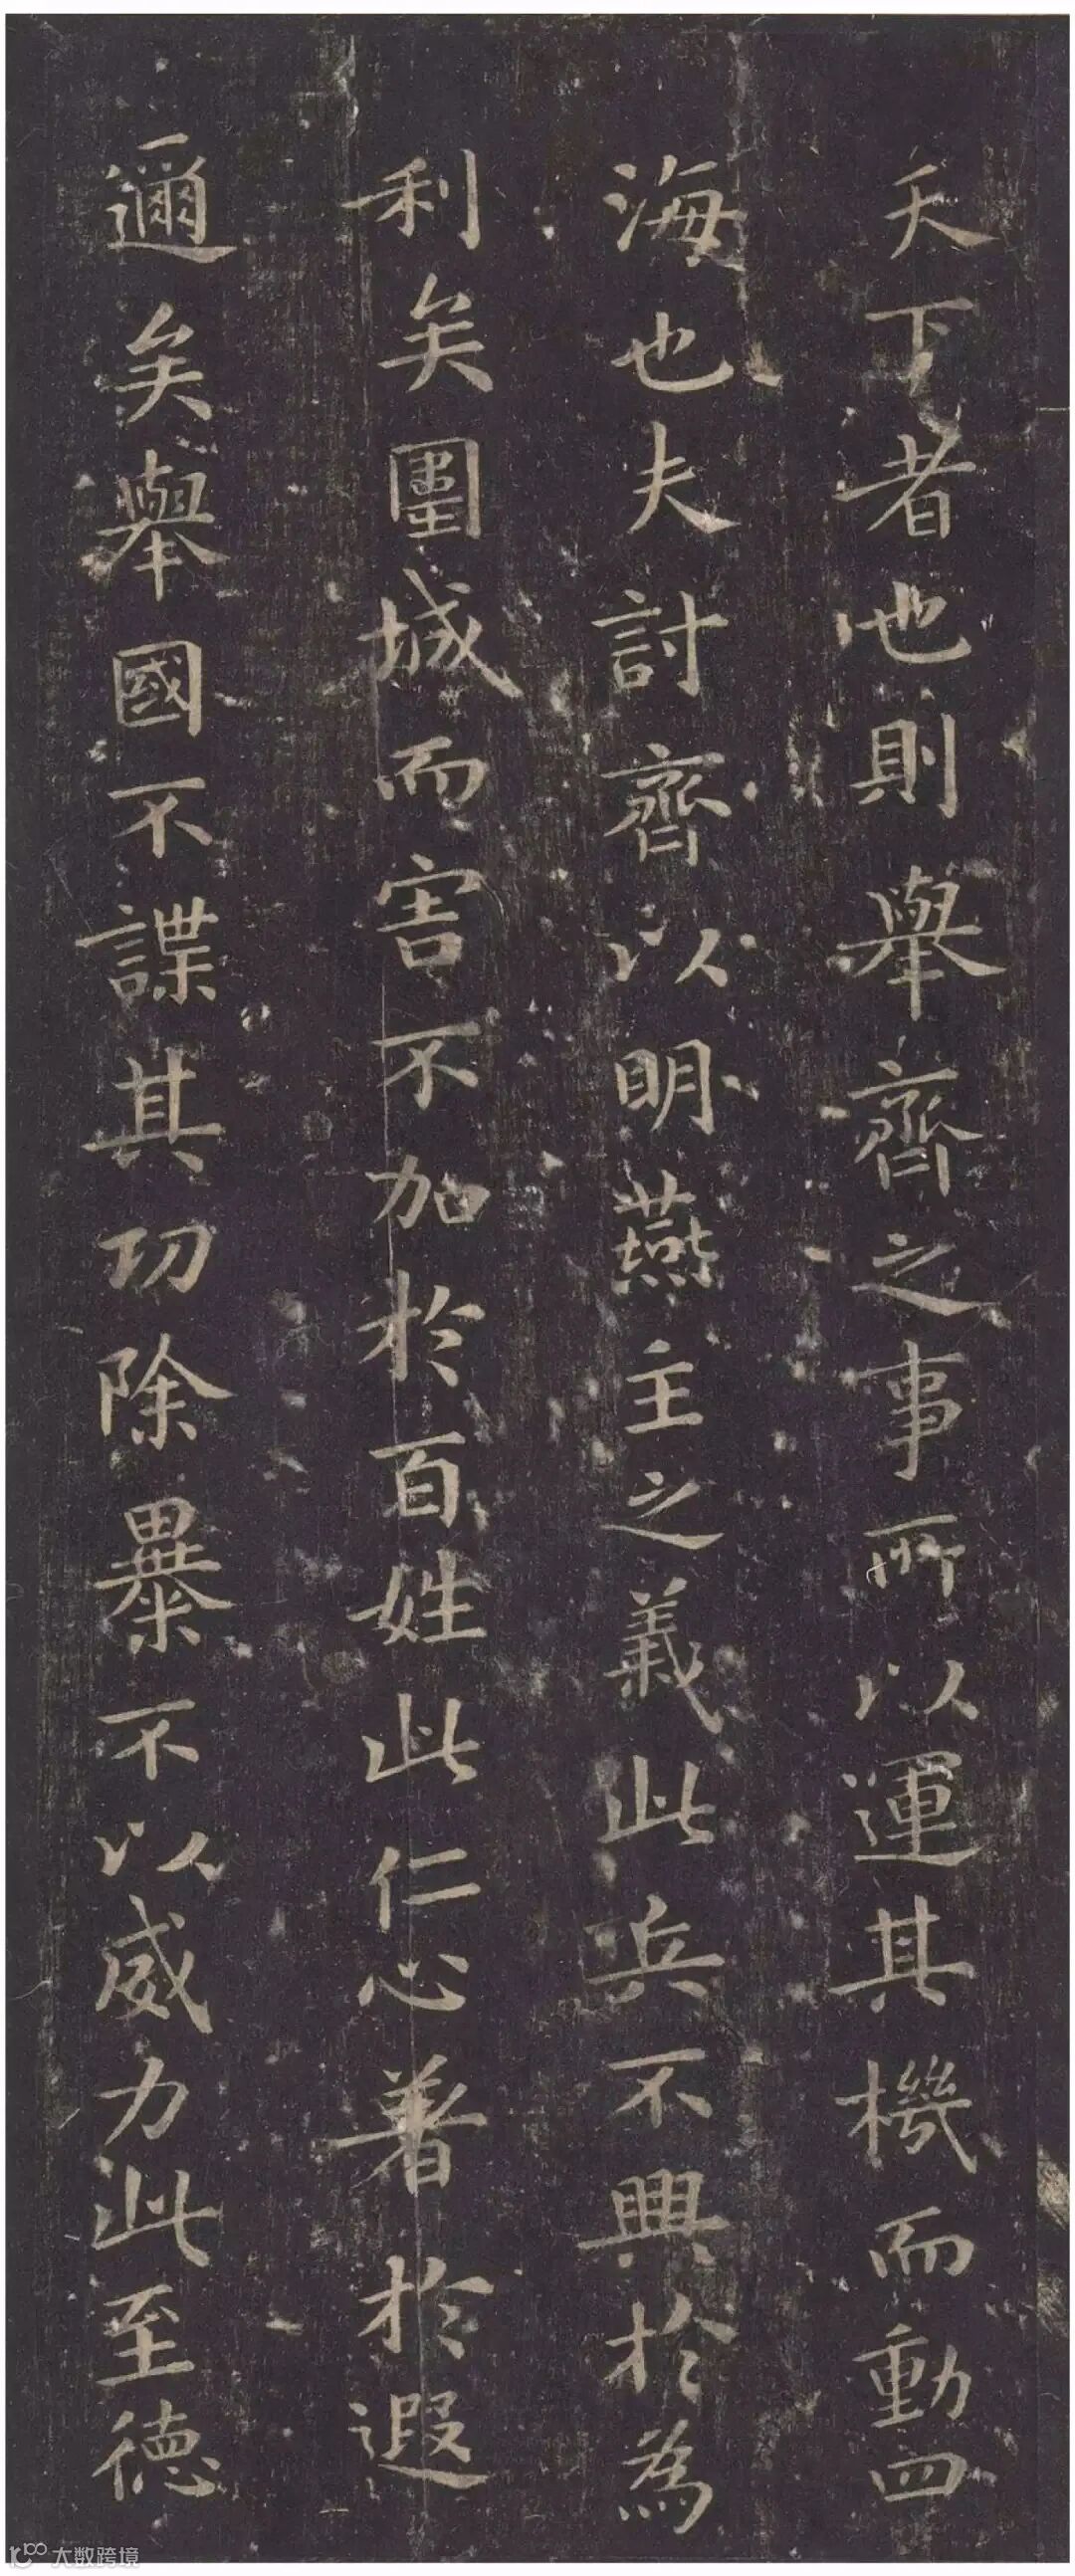 天下者也則舉齊之事所以運其機而動四
海也夫討齊以明燕主之義此兵不興於為
利矣圍城而害不加於百姓此仁心著於遐
邇矣舉國不謀其功除暴不以威力此至德
大数跨境